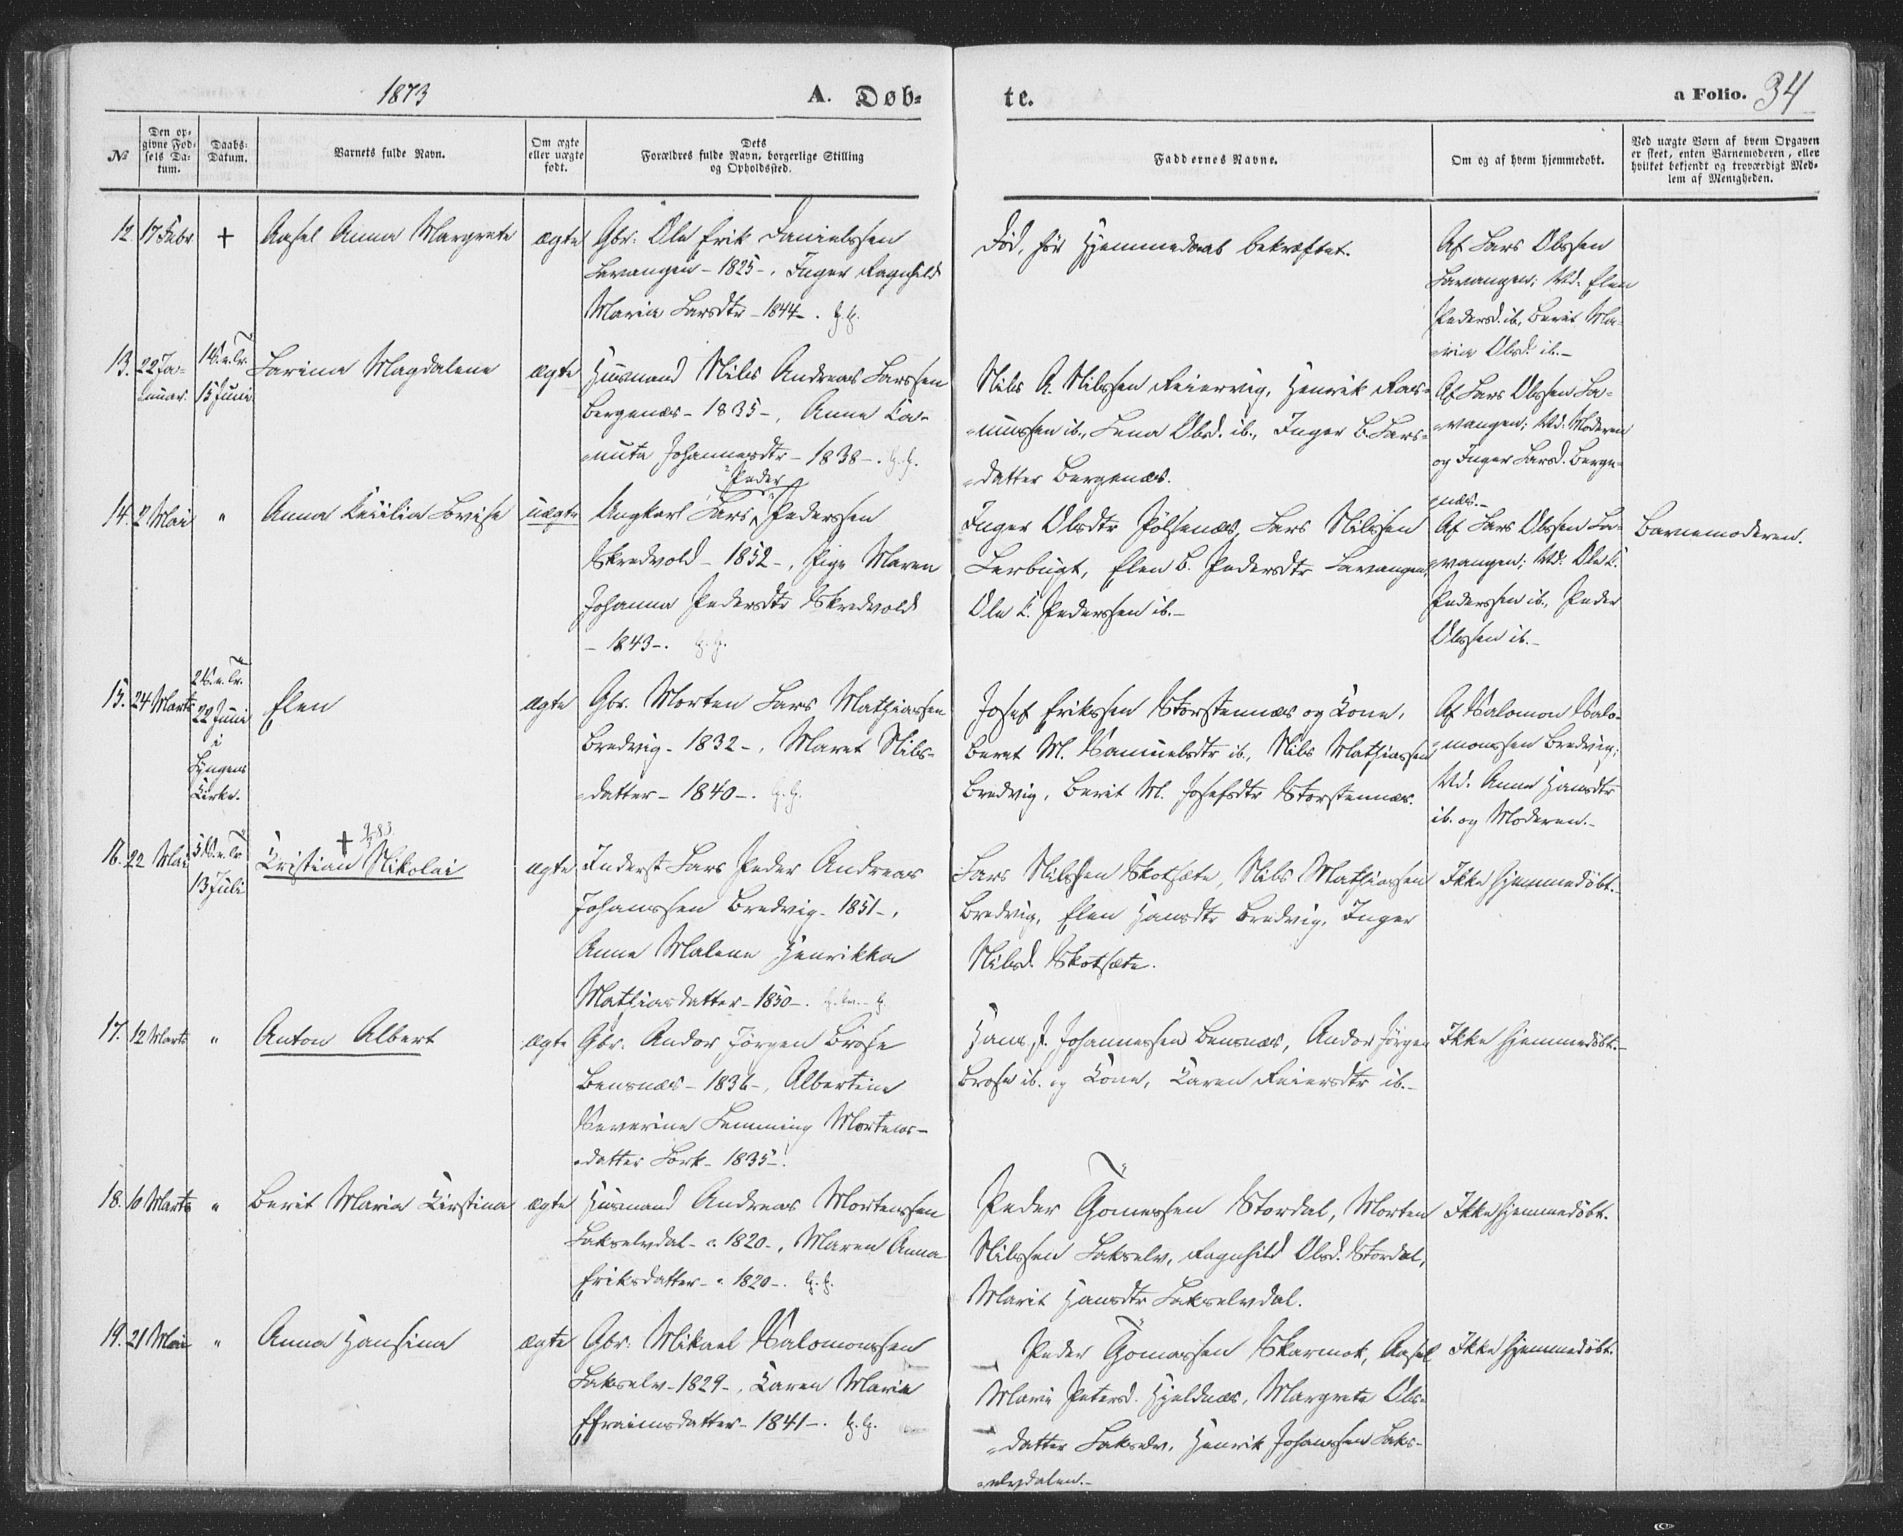 1873
A. Døb-
te.
a Folio. 34
№
Den op-
givne Fød-
sels Da-
tum.
Daabs-
Datum.
Barnets fulde Navn.
Om ægte
eller uægte
født.
Dets
Forældres fulde Navn, borgerlige Stilling
og Opholdssted.
Faddernes Navne.
Om og af hvem hjemmedøbt.
Ved uægte Børn af hvem Opgaven
er skeet, enten Barnemoderen, eller
hvilket bekjendt og troværdigt Med-
lem af Menigheden.
12. 17 Febr + Aasel Anna Margrete ægte Gbr. Ole Erik Danielssen
Lavangen - 1825 -, Inger Ragnhild
Maria Larsdtr - 1844 -.
Død, før Hjemmedaab bekræftet.
Af Lars Olssen
Lavangen; Vd. Elen
Pedersd. ib, Berit Ma-
ria Olsd. ib. -
13. 22 Ja-
nuar
15 Juni
Larina Magdalene ægte Husmand Nils Andreas Larssen
Bergenæs - 1835 -, Anne Ca-
nuta Johannesdtr - 1838 -.
Nils A. Nilssen Reiervig, Henrik Ras-
mussen ib., Lena Olsd. ib., Inger B. Lars-
datter Bergenæs.
Af Lars Olssen La-
vangen; Vd. Moderen
og Inger Larsd. Berge-
næs. -
14. 2 Mai " Anna Cecilia Lovise uægte Ungkarl Lars Peder Pederssen
Skredvold - 1852 -, Pige Maren
Johanna Pedersdtr Skredvold
- 1843 -.
Inger Olsdtr Pølsenæs, Lars Nilssen
Lerbugt, Elen B. Pedersdtr Lavangen,
Ole C. Pederssen ib. -
Af Lars Olssen La-
vangen; Vd. Ole C.
Pederssen ib., Peder
Olssen ib. -
Barnemoderen.
15. 24 Marts
22 Juni
i
Lyngens
Kirke.
Elen ægte Gbr. Morten Lars Mathiassen
Bredvig - 1832 -, Maret Nils-
datter - 1840 -.
Josef Erikssen Storstennæs og Kone,
Beret M. Samuelsdtr ib., Nils Mathiassen
Bredvig, Berit M. Josefsdtr Storstennæs.
Af Salomon Salo-
monssen Bredvig;
Vd. Anna Hansdtr
ib. og Moderen. -
16. 22 Mai
13 Juli
+
Kristian Nikolai ægte Inderst Lars Peder Andreas
Johanssen Bredvig - 1851 -,
Anne Malene Henrikka
Mathiasdatter - 1850 -.
Lars Nilssen Skotsæte, Nils Mathiassen
Bredvig, Elen Hansdtr Bredvig, Inger
Nilsd. Skotsæte.
Ikke hjemmedøbt. -
17. 12 Marts " Anton Albert ægte Gbr. Andor Jörgen Brose
Bensnæs - 1836 -, Albertine
Severine Lemming Mortens-
datter Lork - 1835 -.
Hans J. Johannessen Bensnæs, Andor Jörgen
Brose ib. og Kone, Karen Reiersdtr ib. -
Ikke hjemmedöbt. -
18. 10 Marts " Berit Maria Kirstina ægte Husmand Andreas Mortenssen
Lakselvdal - c. 1820 -, Maren Anna
Eriksdatter - c. 1820 -.
Peder Tomassen Stordal, Morten
Nilssen Lakselv, Ragnhild Olsd. Stordal,
Marit Hansdtr Lakselvdal.
Ikke hjemmedöbt.
19. 21 Mai " Anna Hansina ægte Gbr. Mikael Salomonssen
Lakselv - 1829 -, Karen Maria
Efraimsdatter - 1841 -.
Peder Tomassen Skarmok, Aasel
Marie Petersd. Hjeldnæs, Margrete Ols-
datter Lakselv, Henrik Johanssen Laks-
elvdalen. -
Ikke hjemmedöbt.